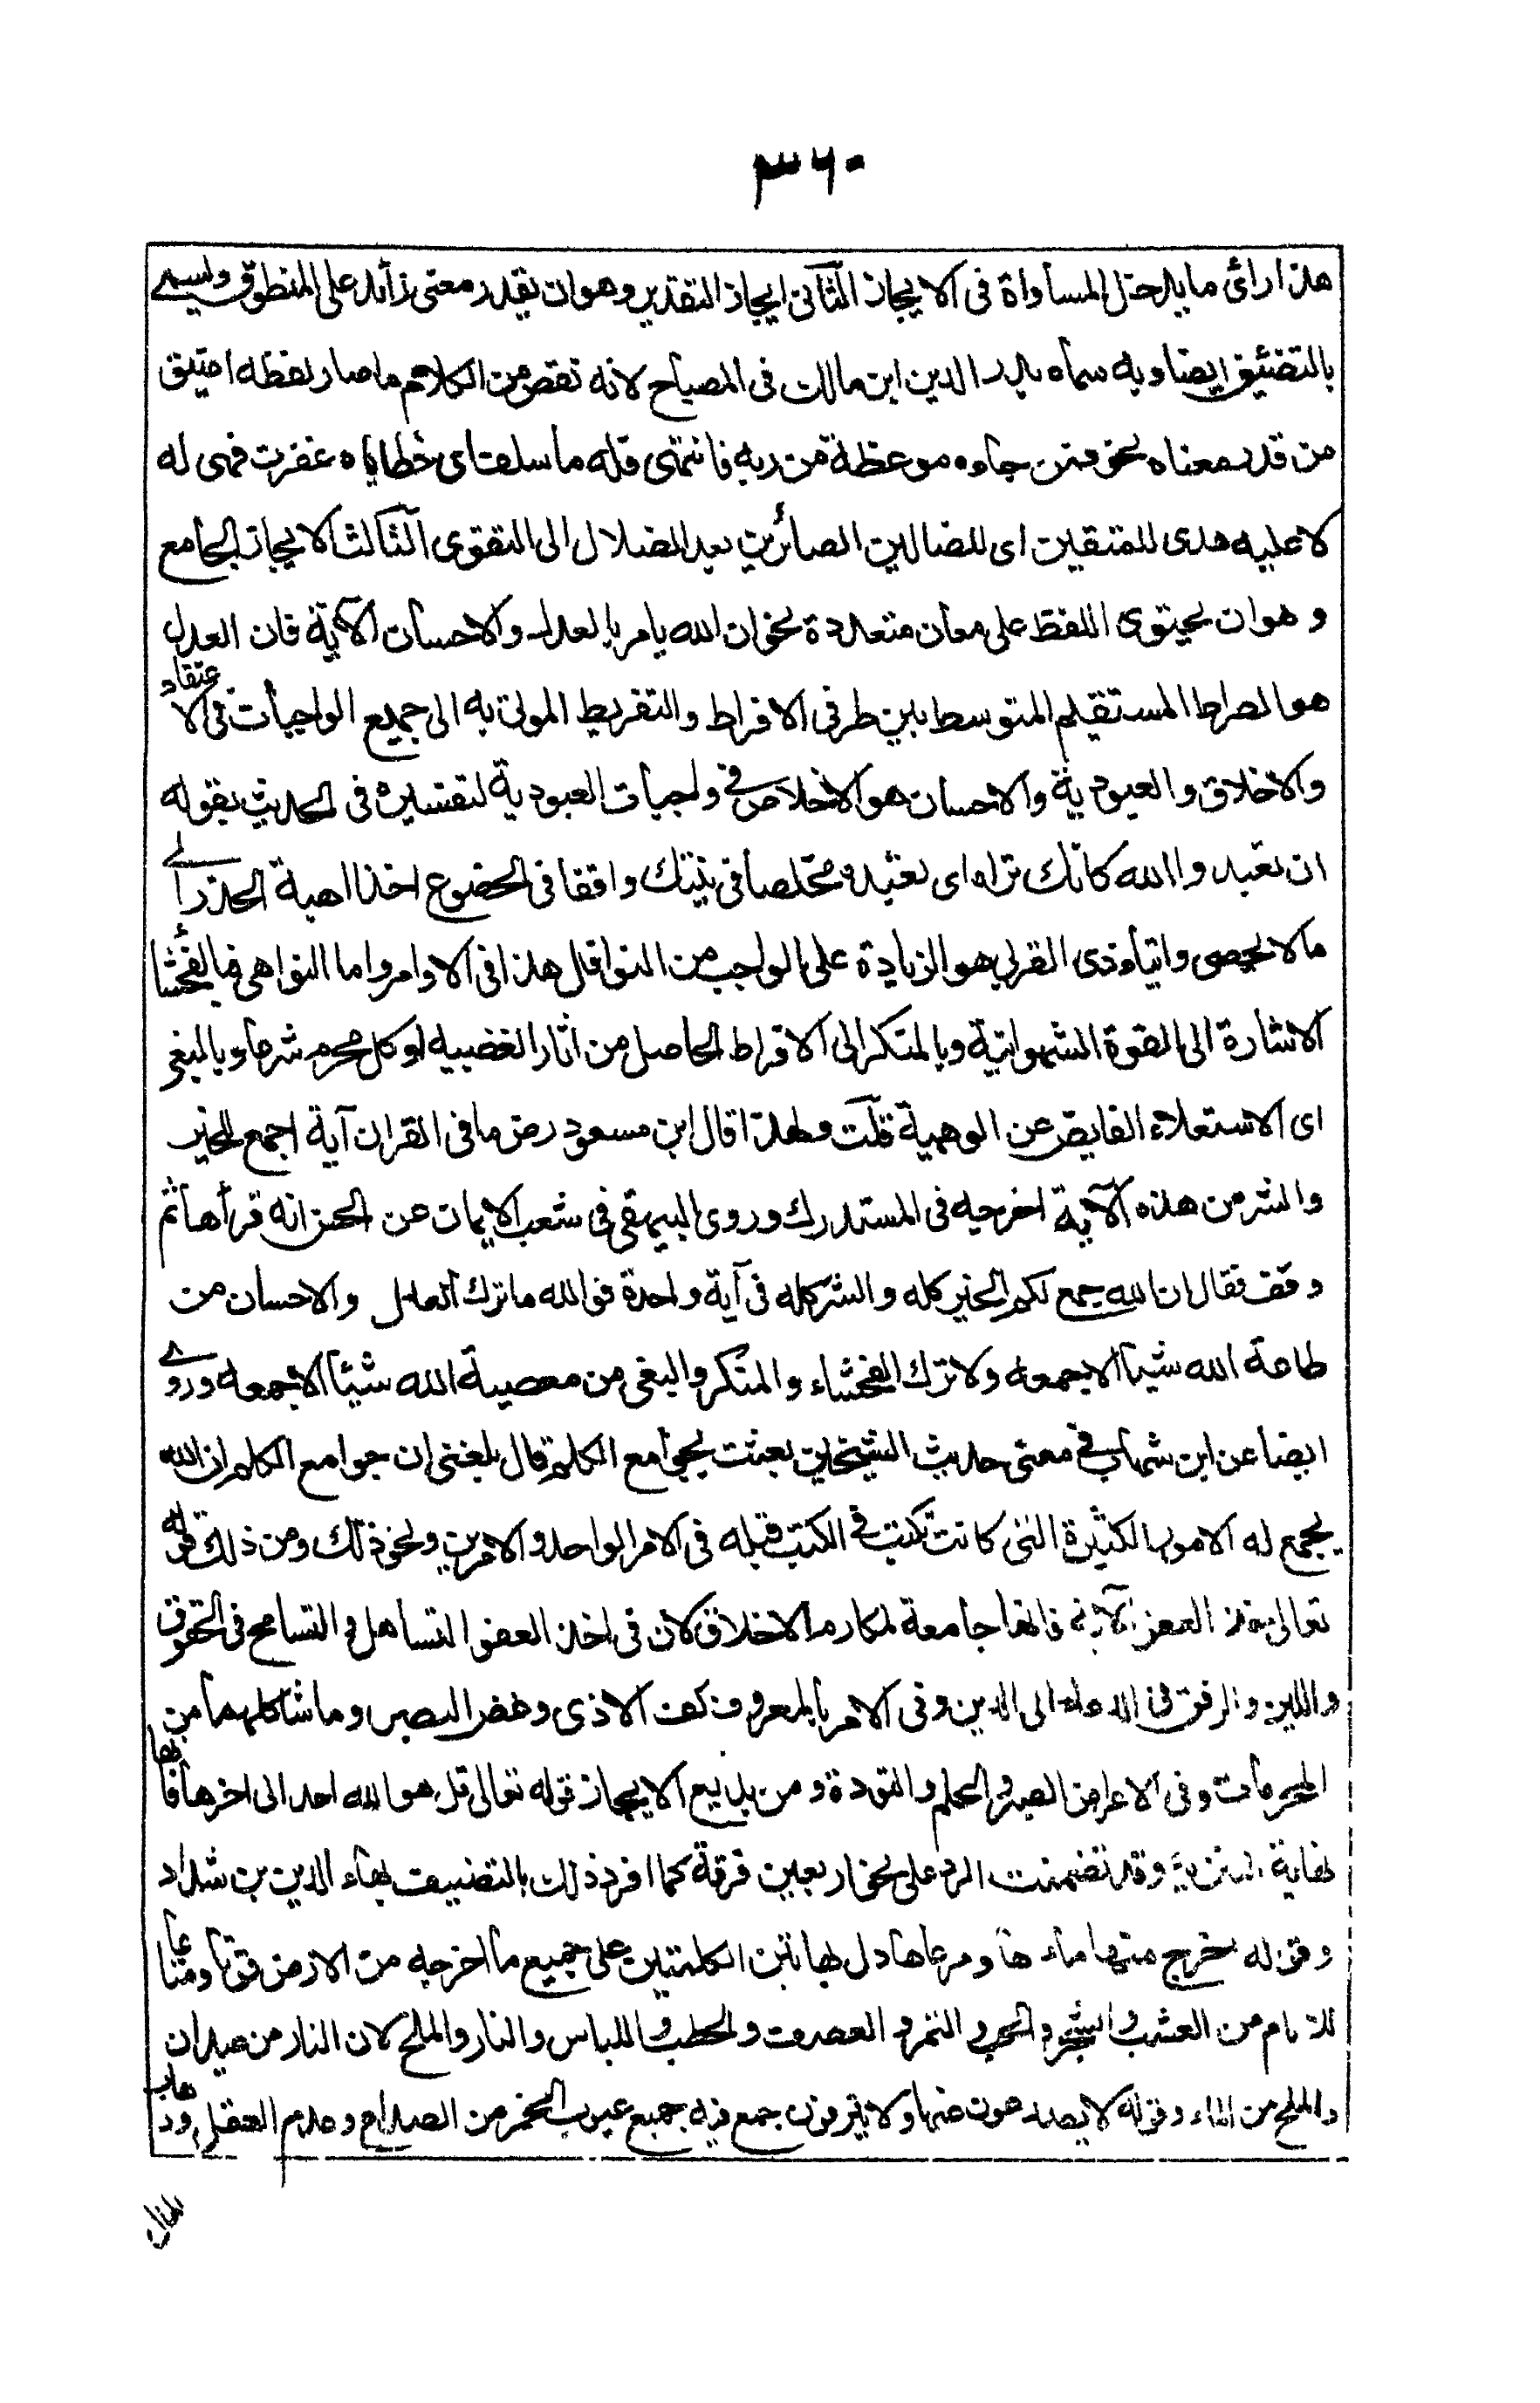 ٣٦٠
هذا رائ ما يدخل المساواة فى الايجاز الثانى ايجاز التقدير وهو ان يقدر معنى زائد على المنطوق ويسمے
بالتضئيق ايضا وبه سماه بدر الدين ابن مالك فى المصباح لانه نقص من الكلام ما صار لفظه اضيق
من قدر معناه نحو فمن جاءه موعظة من ربه فانتهى فله ما سلف اى خطاياه غفرت فهى له
لا عليه هدى للمتقين اى للضالين الصائرين بعد الضلال الى التقوى الثالث الايجاز الجامع
وهو ان يحتوى اللفظ على معان متعددة نحو ان الله يامر بالعدل والاحسان الآية فان العدل
هو الصراط المستقيم المتوسط بين طرفى الافراط والتفريط المولى به الى جميع الواجبات فى الاعتقاد
والاخلاق والعبودية والاحسان هو الاخلاص فى واجبات العبودية لتفسيره فى الحديث بقوله
ان تعبدوا الله كانك تراه اى تعبده مخلصا فى نيتك واقفا فى الخضوع اخذا اهبة الحذر الے
مالا يحصى وايتاء ذى القربى هو الزيادة على الواجب من النوافل هذا فى الاوامر واما النواهى فبالفحشا
الاشارة الى القوة الشهوانية وبالمنكر الى الافراط الحاصل من اثار الغضبيه او كل محرم شرعا وبالبغى
اى الاستعلاء الفايض عن الوهمية قلت ولهذا قال ابن مسعود رض ما فى القران آية اجمع للخير
والشر من هذه الآية اخرجه فى المستدرك وروى البيهقى فى شعب الايمان عن الحسن انه قرأها ثم
وقف فقال ان الله جمع لكم الخير كله والشر كله فى آية واحدة فوالله ما ترك العدل والاحسان من
طاعة الله شيئا الا جمعه ولا ترك الفحشاء والمنكر والبغى من معصية الله شيئا الا جمعه وروے
ايضا عن ابن شهاب فى معنى حديث الشيخين بعثت بجوامع الكلم قال بلغنى ان جوامع الكلم ان الله
يجمع له الامور الكثيرة التى كانت تكتب فى الكتب قبله فى الامر الواحد والامرين ونحو ذلك ومن ذلك قوله
تعالى خذ العفو الآية فانها جامعة لمكارم الاخلاق لان فى اخذ العفو التساهل والتسامح فى الحقوق
واللين والرفق فى الدعاء الى الدين وفى الامر بالمعروف كف الاذى وغض البصر وما شاكلهما من
المحرمات وفى الاعراض الصبر والحلم والتودة ومن بديع الايجاز قوله تعالى قل هو الله احد الى اخرها فانها
نهاية التنزيه وقد تضمنت الرد على نحو اربعين فرقة كما افرد ذلك بالتصنيف بهاء الدين بن شداد
وقوله اخرج منها ماءها ومرعاها دل بهاتين الكلمتين على جميع ما اخرجه من الارض قوتا ومتاعا
للانام من العشب والشجر والحب والثمر والعصف والحطب واللباس والنار والملح لان النار من عيدان
والملح من الماء وقوله لا يصدعون عنها ولا ينزفون جمع فيه جميع عيوب الخمر من الصداع وعدم العقل وذهاب
المال